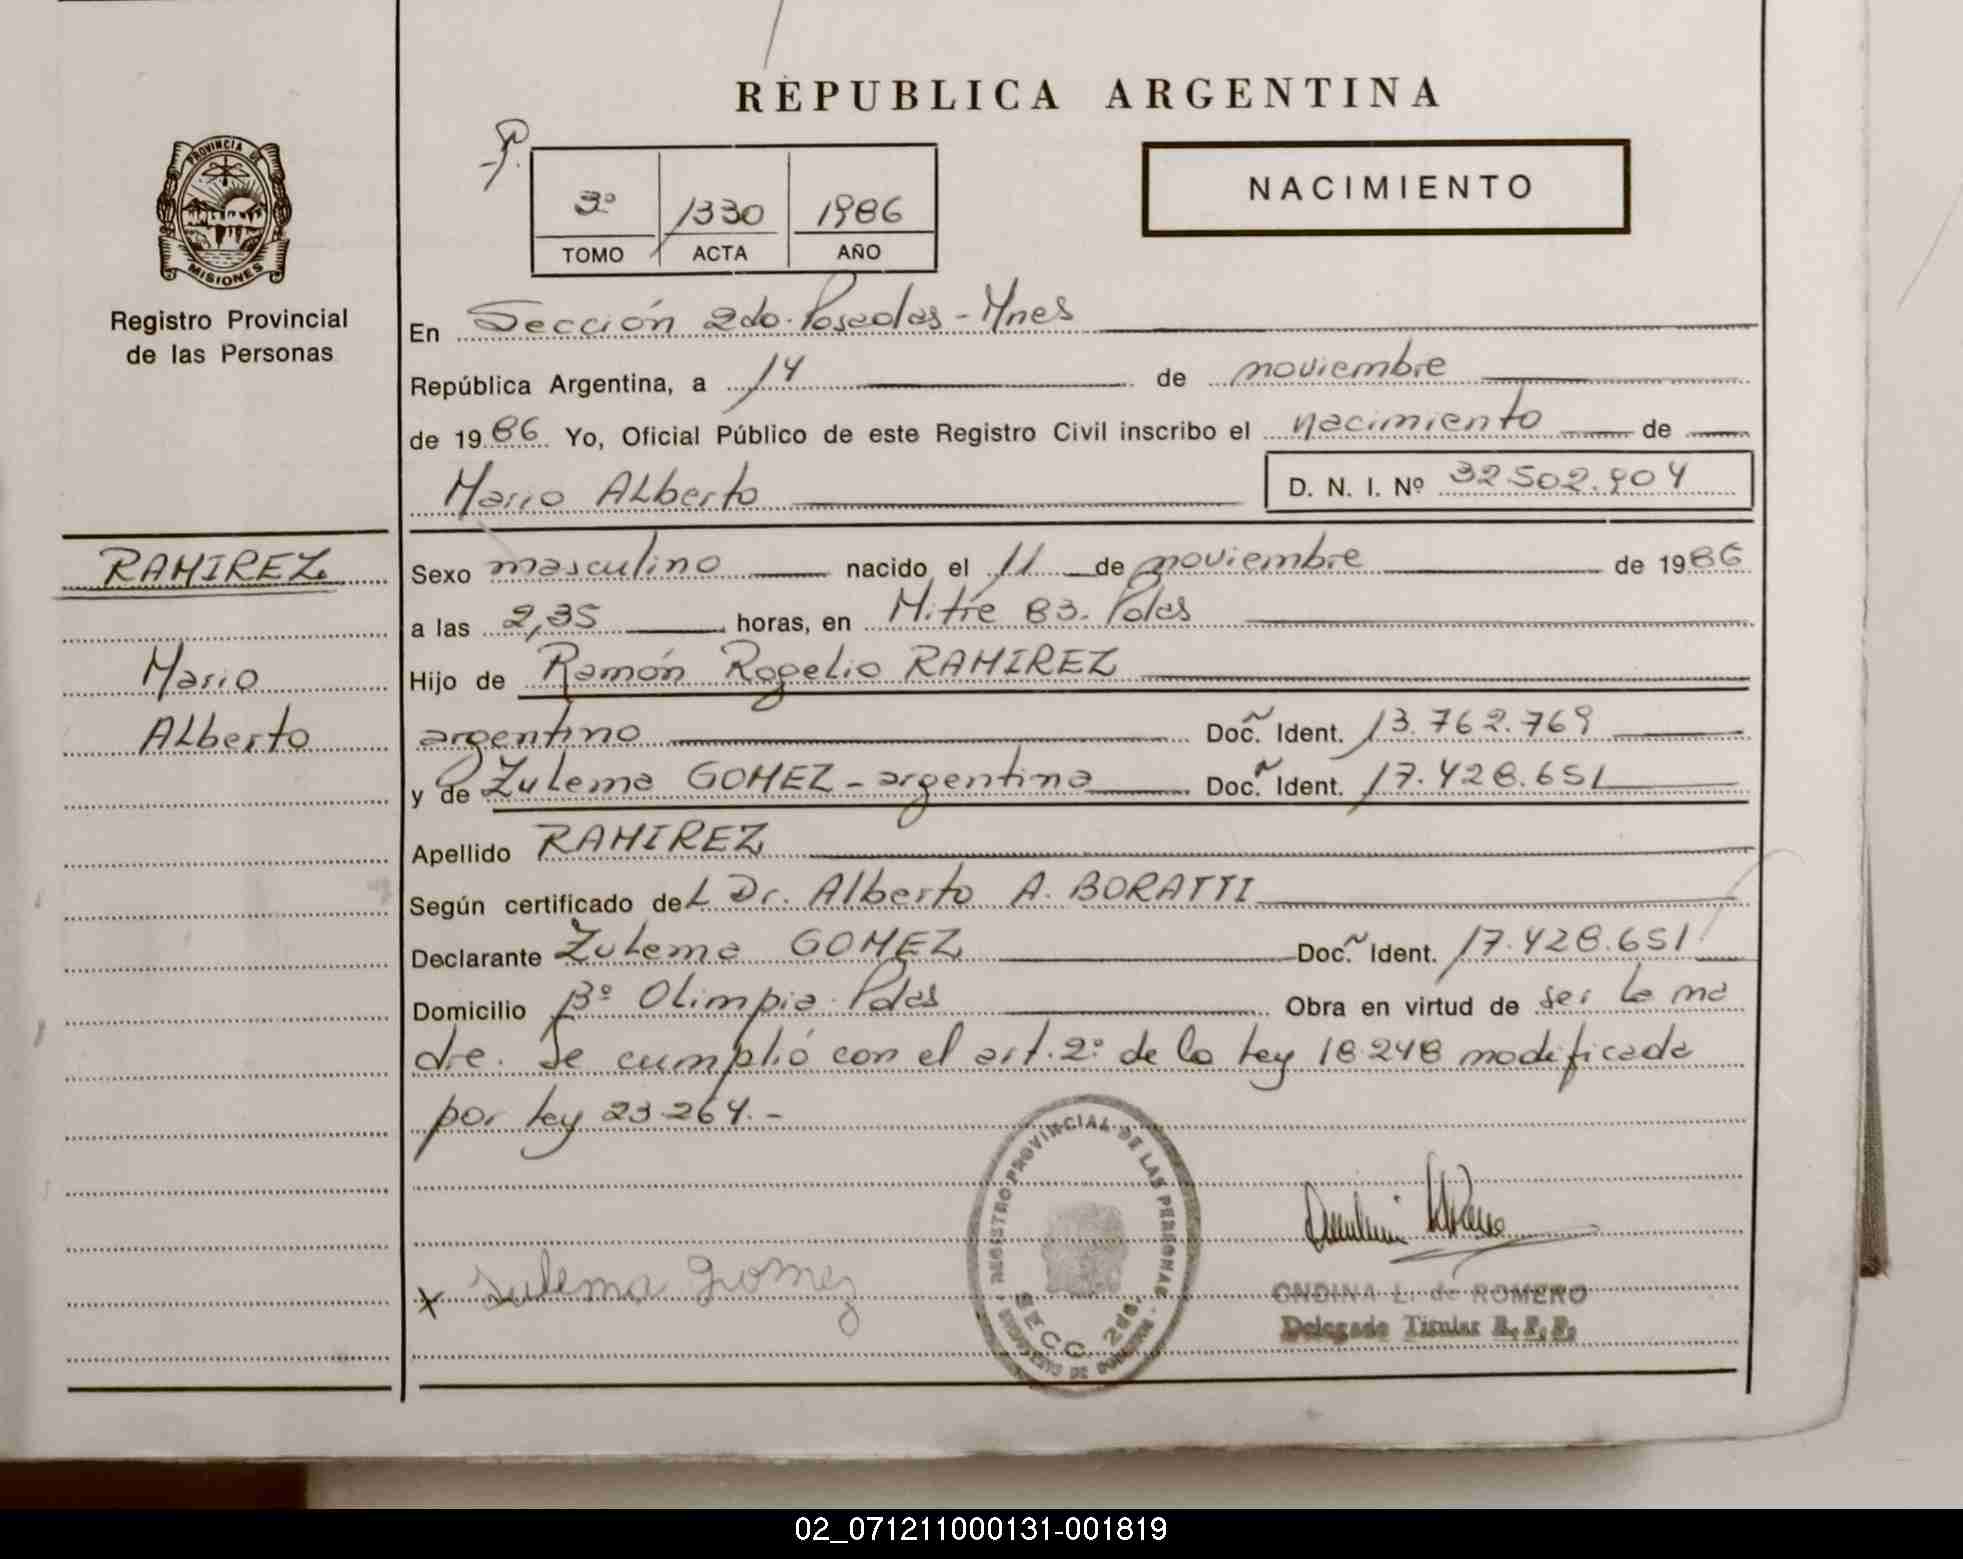 REPUBLICA ARGENTINA
PROVINCIA DE
MISIONES
Registro Provincial
de las Personas
3º 1330 1986
TOMO ACTA AÑO
NACIMIENTO
En Sección 2do. Posadas - Mnes
República Argentina, a 14 de noviembre
de 1986 Yo, Oficial Público de este Registro Civil inscribo el nacimiento de
Mario Alberto D. N. I. Nº 32.502.904
RAMIREZ
Mario
Alberto
Sexo masculino nacido el 11 de noviembre de 1986
a las 2,35 horas, en Mitre 83. Pdas
Hijo de Ramón Rogelio RAMIREZ
argentino Doc. Ident. 13.762.769
y de Zulema GOMEZ - argentina Doc. Ident. 17.428.651
Apellido RAMIREZ
Según certificado del Dr. Alberto A. BORATTI
Declarante Zulema GOMEZ Doc. Ident. 17.428.651
Domicilio Bº Olimpia. Pdas Obra en virtud de ser la ma
dre. Se cumplió con el art. 2º de la ley 18.248 modificada
por ley 23.264.-
REGISTRO PROVINCIAL DE LAS PERSONAS
SECC. 2da.
x Zulema Gomez
ONDINA L. de ROMERO
Delegado Titular R. P. P.
02_071211000131-001819